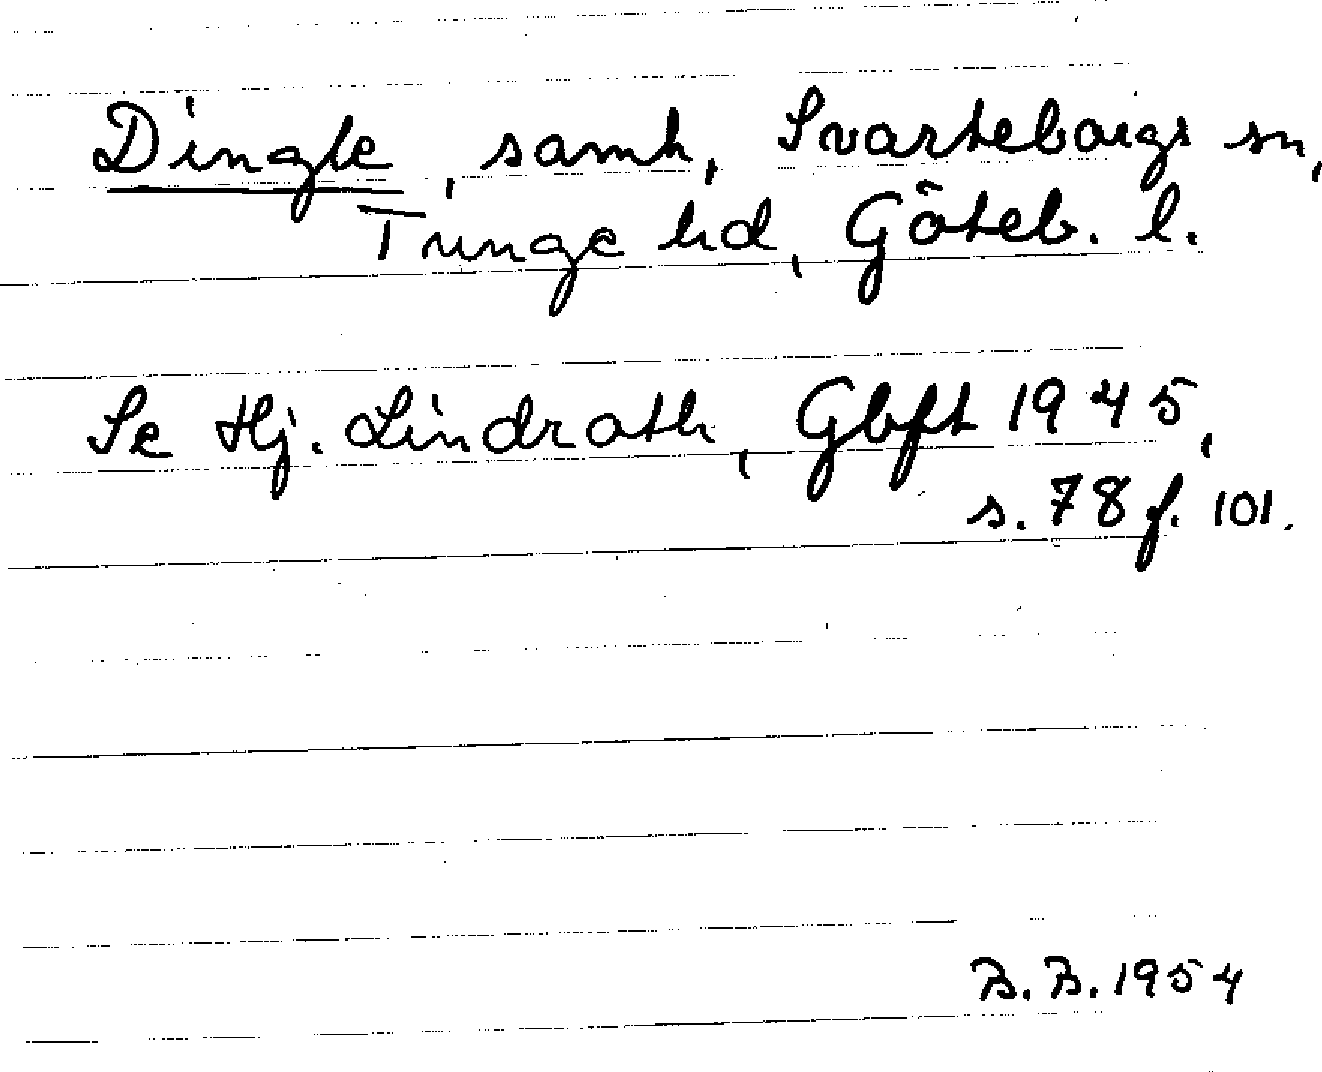 Dingle, samh, Svarteborgs sn,
Tunge hd, Göteb. l.
Se Hj. Lindroth, Gbft 1945,
s. 78 f. 101.
B. B. 1954